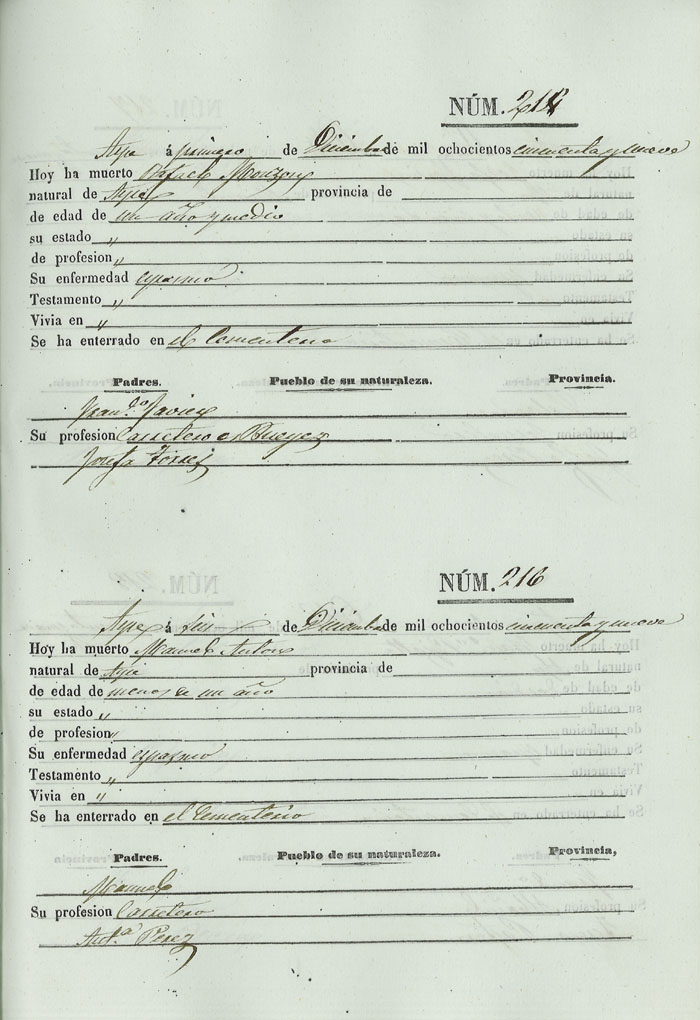 NÚM. 215
Aspe á primero de Diciembre de mil ochocientos cincuenta y nueve
Hoy ha muerto Rafael Monzon
natural de Aspe provincia de
de edad de un año y medio
su estado "
de profesion "
Su enfermedad espasmo
Testamento "
Vivia en "
Se ha enterrado en el Cementerio
Padres. Pueblo de su naturaleza. Provincia.
Fran.co Javier
Su profesion Carretero
Josefa Torres
NÚM. 216
Aspe á seis de Diciembre de mil ochocientos cincuenta y nueve
Hoy ha muerto Manuel Antonio
natural de Aspe provincia de
de edad de menos de un año
su estado "
de profesion "
Su enfermedad espasmo
Testamento "
Vivia en "
Se ha enterrado en el Cementerio
Padres. Pueblo de su naturaleza. Provincia,
Manuel
Su profesion Carretero
Ant.a Perez